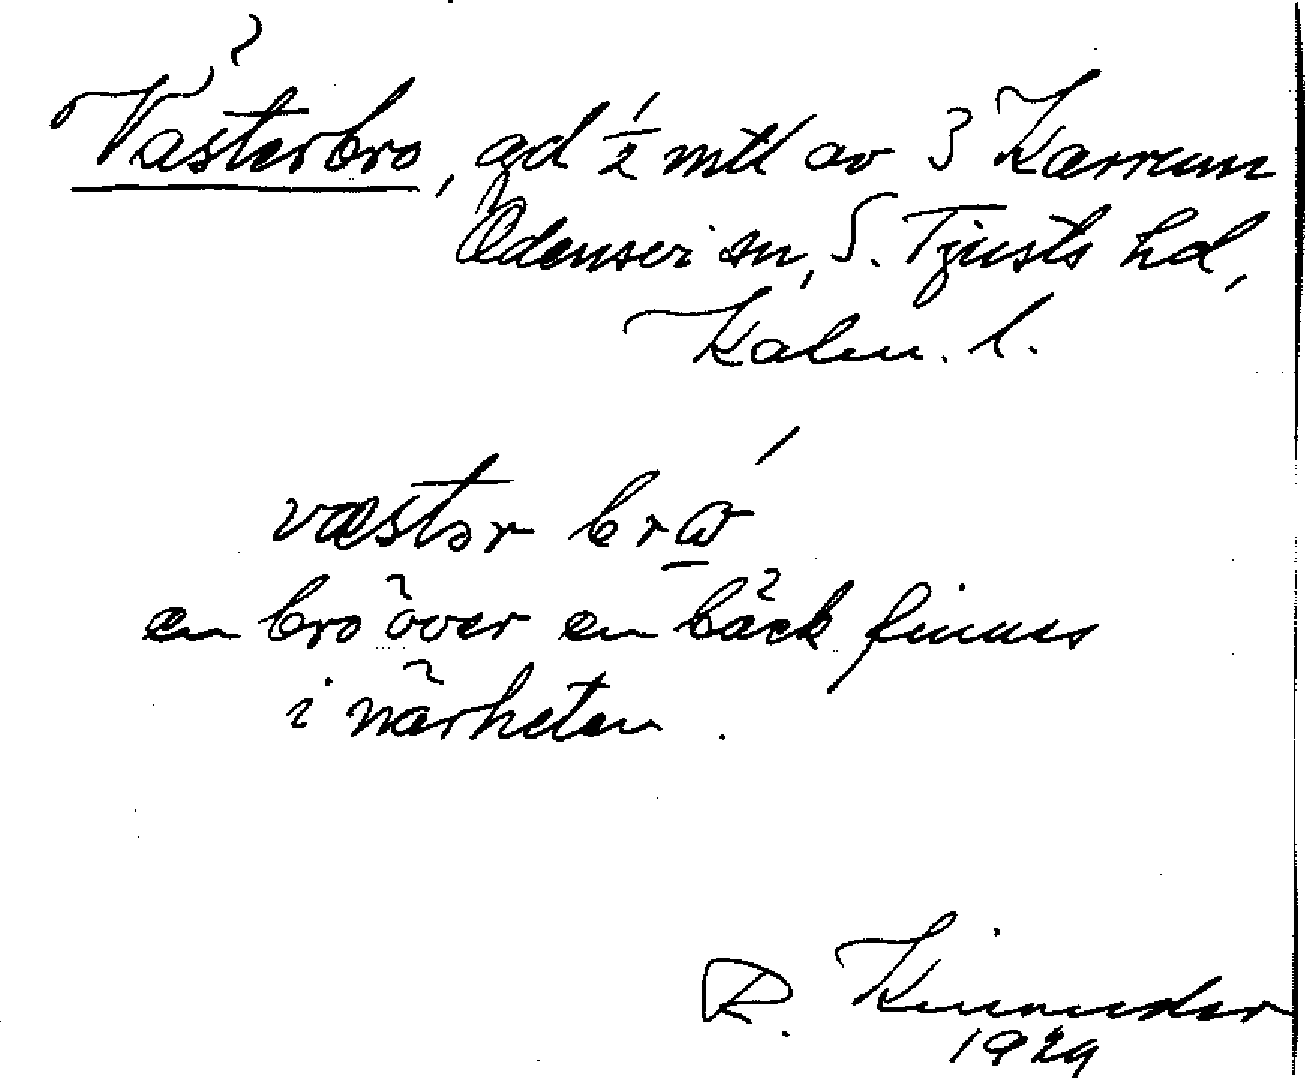 Västerbro, gd ½ mtl av 3 Karrum
Odensvi sn, S. Tjusts hd,
Kalm. l.
væstər brω
en bro över en bäck finnes
i närheten.
R.
1929